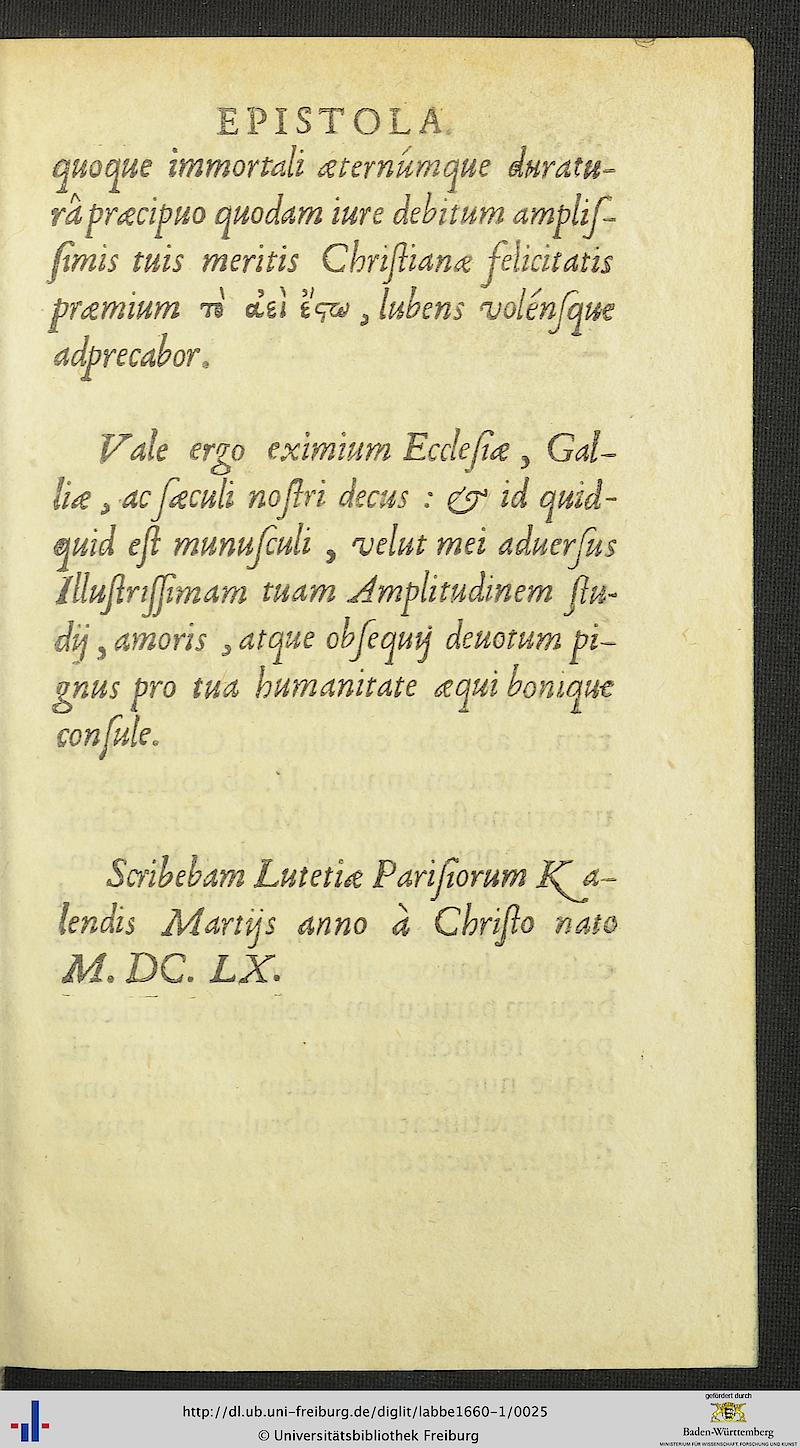 EPISTOLA.
quoque immortali æternúmque duratu-
râ præcipuo quodam iure debitum ampliſ-
ſimis tuis meritis Chriſtianæ felicitatis
præmium τὸ ἀεὶ ἔϛω, lubens volénſque
adprecabor.
Vale ergo eximium Eccleſiæ, Gal-
liæ, ac ſæculi noſtri decus : & id quid-
quid eſt munuſculi, velut mei aduerſus
Illuſtriſſimam tuam Amplitudinem ſtu-
dij, amoris, atque obſequij deuotum pi-
gnus pro tua humanitate æqui bonique
conſule.
Scribebam Lutetiæ Pariſiorum Ka-
lendis Martijs anno à Chriſto nato
M. DC. LX.
http://dl.ub.uni-freiburg.de/diglit/labbe1660-1/0025
© Universitätsbibliothek Freiburg
gefördert durch
Baden-Württemberg
MINISTERIUM FÜR WISSENSCHAFT, FORSCHUNG UND KUNST